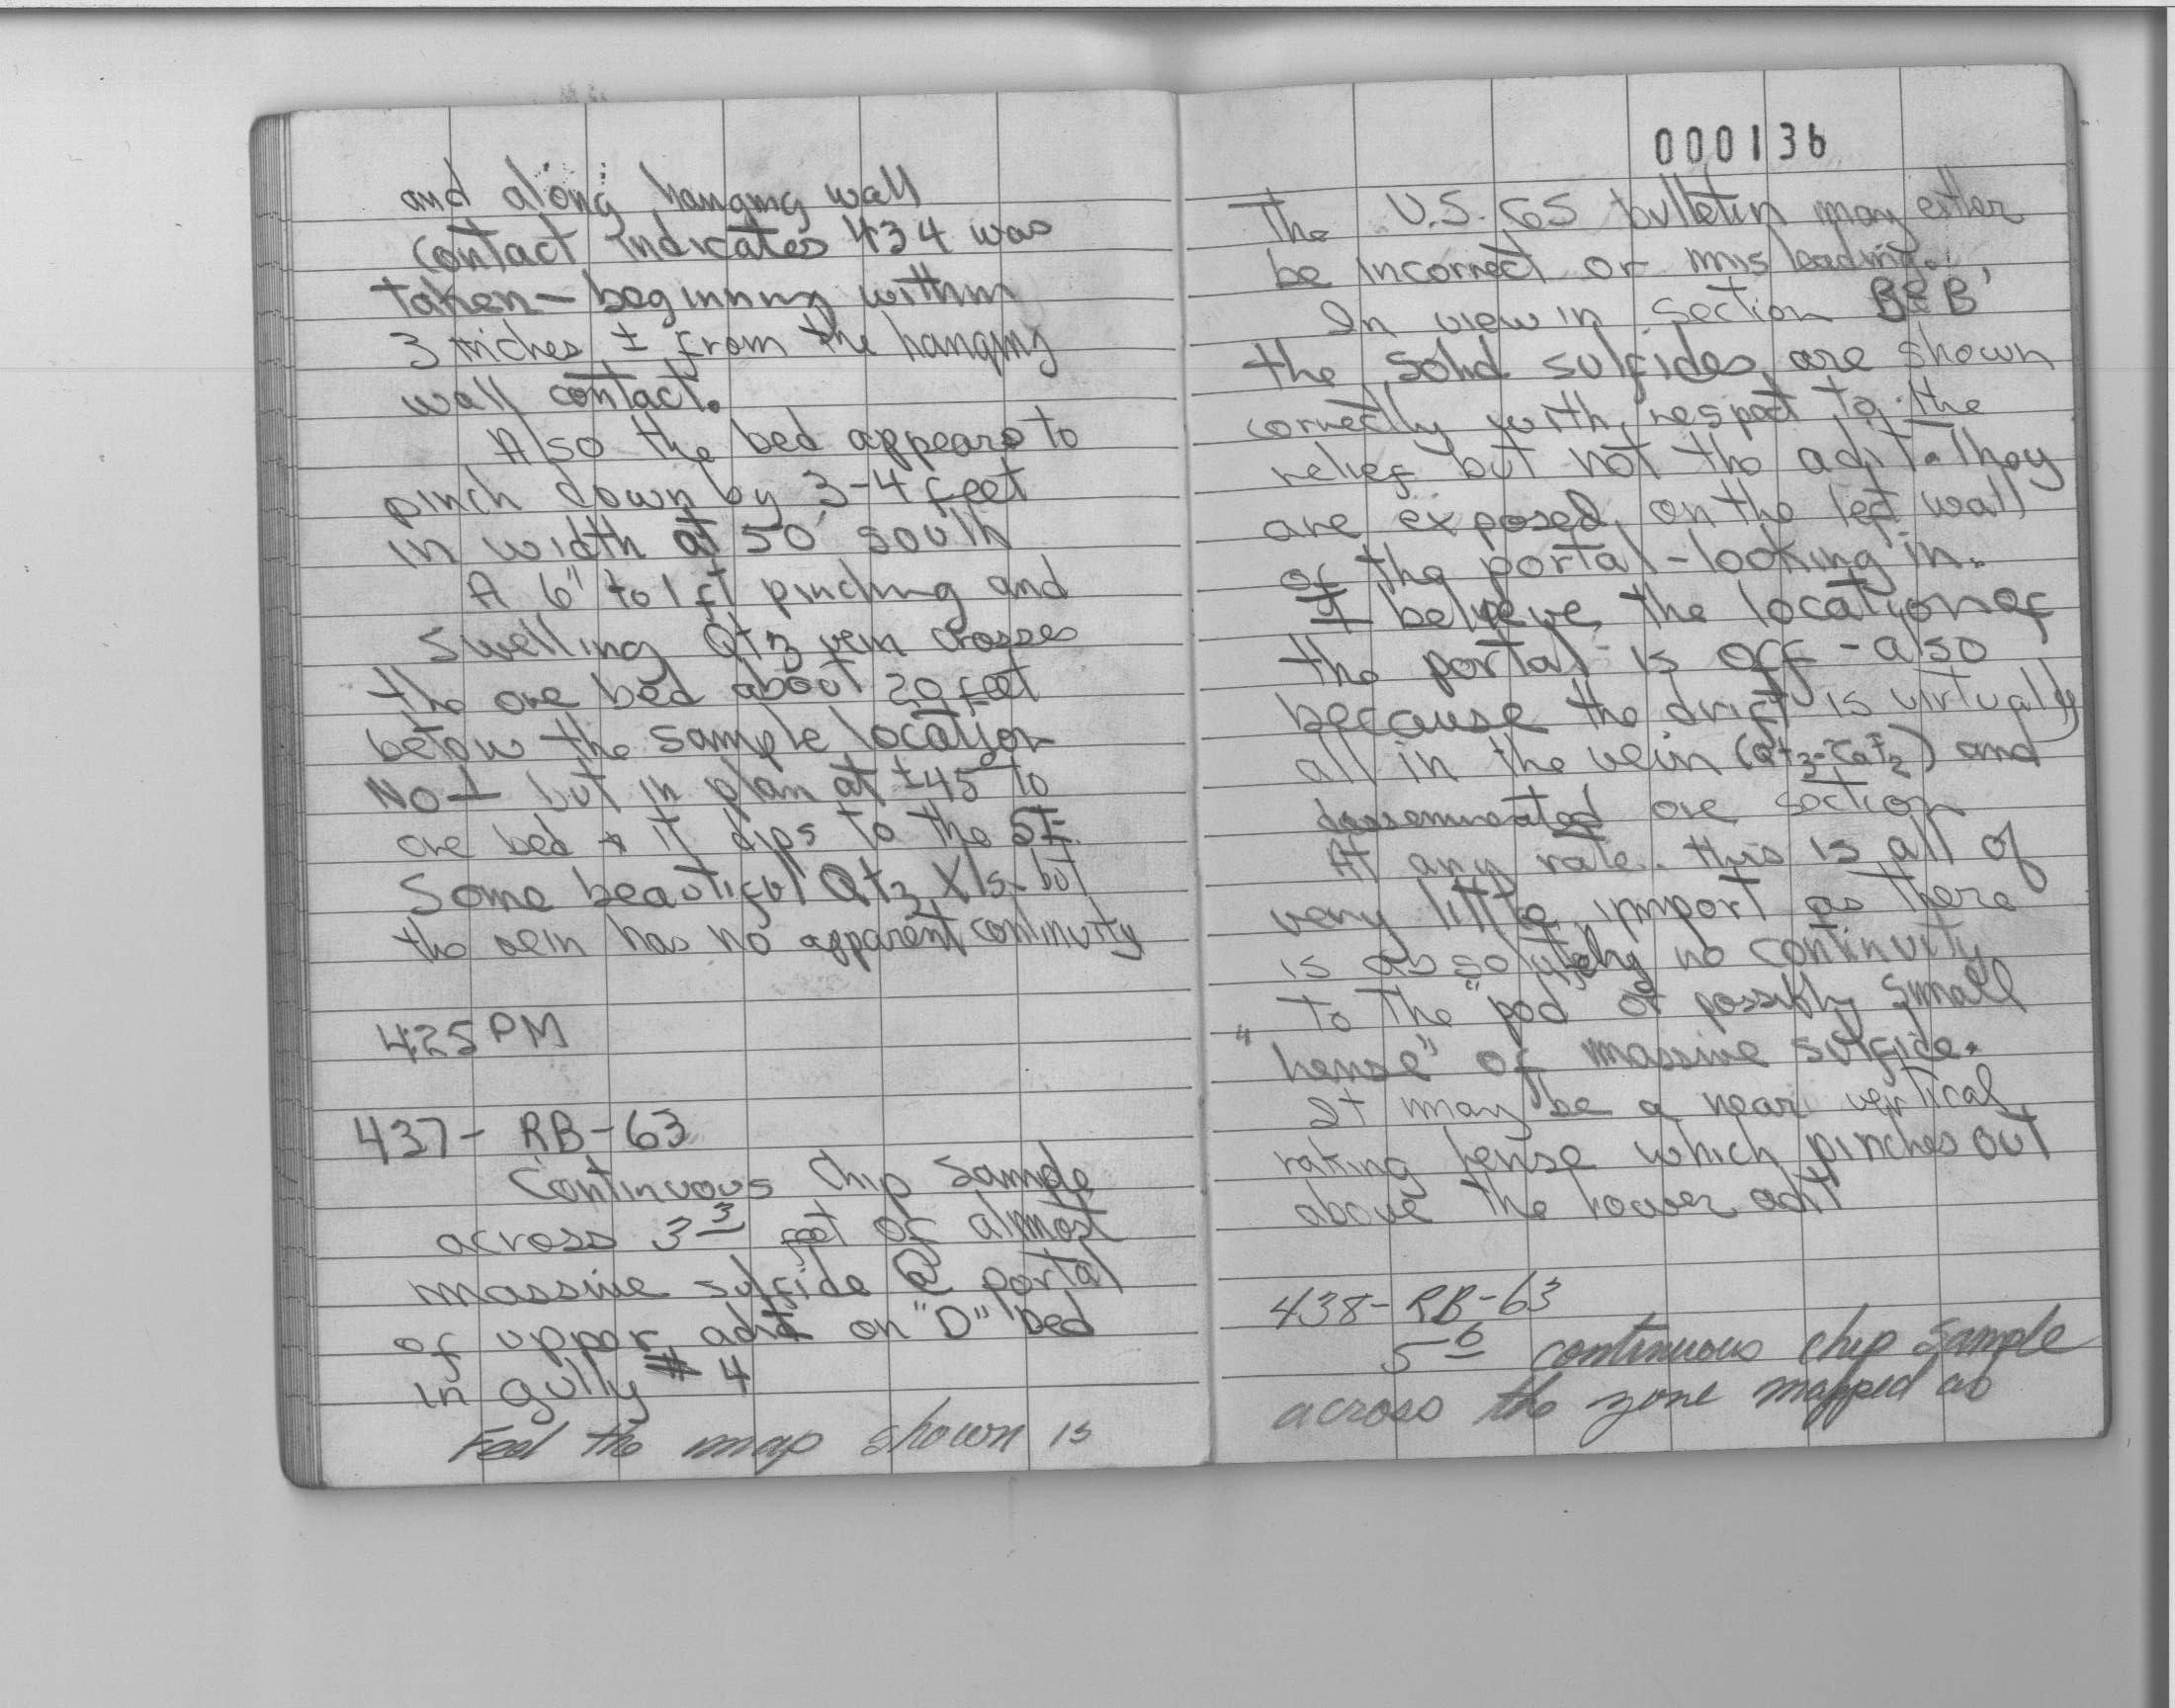 and along hanging wall
contact indicates 434 was
taken - beginning within
3 inches ± from the hanging
wall contact.
Also the bed appears to
pinch down by 3-4 feet
in width at 50' south
A 6" to 1 ft pinching and
swelling Qtz vein crosses
the ore bed about 20 feet
below the sample location
No ⊥ but in plan at ±45° to
ore bed & it dips to the SE.
Some beautiful Qtz Xls but
the vein has no apparent continuity
425 PM
437- RB-63
Continuous Chip Sample
across 3 3 feet of almost
massive sulfide @ portal
of upper adit on "D" bed
in gully # 4
Feel the map shown is
000136
The U.S.GS bulletin may either
be incorrect or misleading.
In view in section B & B'
the solid sulfides are shown
correctly with respect to the
relief but not the adit. They
are exposed on the left wall
of the portal - looking in.
I believe the location of
the portal is off - also
because the drift is virtually
all in the vein (Qtz- ) and
disseminated ore section
At any rate.. this is all of
very little import as there
is absolutely no continuity
to the "pod" or possibly small
"lense" of massive sulfide.
It may be a near vertical
raking lense which pinches out
above the lower adit
438- RB-63
5 6 continuous chip sample
across the zone mapped as